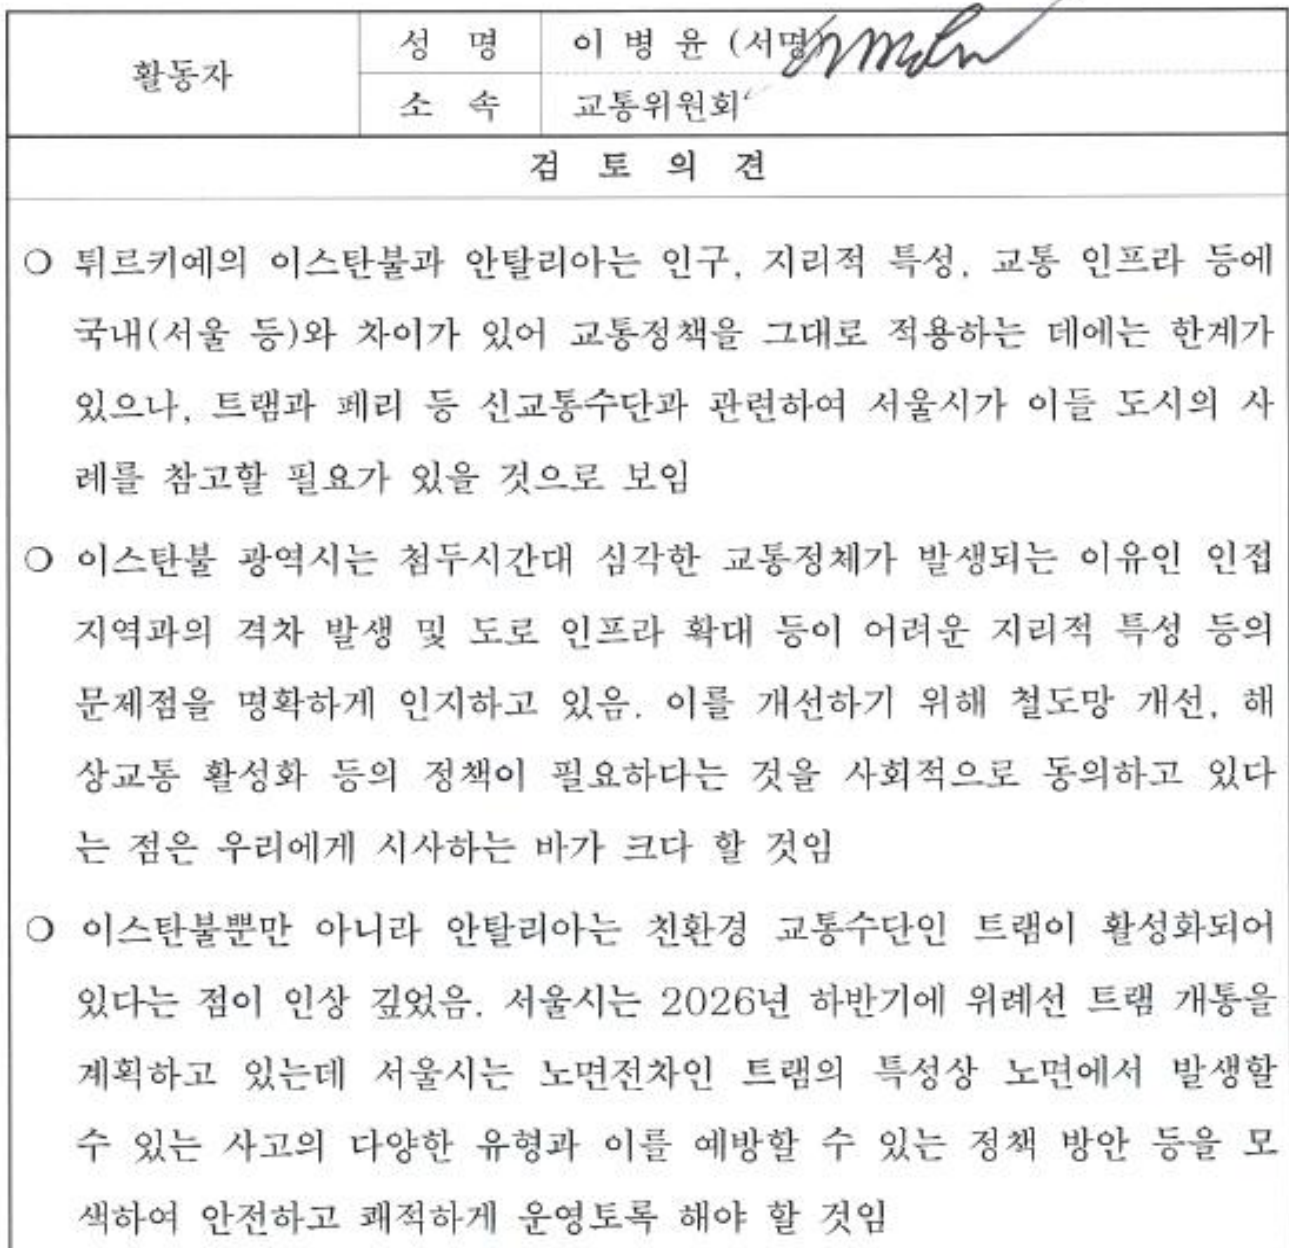 활동자
성 명 이 병 윤 (서명)
소 속 교통위원회
검 토 의 견
❍ 튀르키예의 이스탄불과 안탈리아는 인구, 지리적 특성, 교통 인프라 등에
국내(서울 등)와 차이가 있어 교통정책을 그대로 적용하는 데에는 한계가
있으나, 트램과 페리 등 신교통수단과 관련하여 서울시가 이들 도시의 사
례를 참고할 필요가 있을 것으로 보임
❍ 이스탄불 광역시는 첨두시간대 심각한 교통정체가 발생되는 이유인 인접
지역과의 격차 발생 및 도로 인프라 확대 등이 어려운 지리적 특성 등의
문제점을 명확하게 인지하고 있음. 이를 개선하기 위해 철도망 개선, 해
상교통 활성화 등의 정책이 필요하다는 것을 사회적으로 동의하고 있다
는 점은 우리에게 시사하는 바가 크다 할 것임
❍ 이스탄불뿐만 아니라 안탈리아는 친환경 교통수단인 트램이 활성화되어
있다는 점이 인상 깊었음. 서울시는 2026년 하반기에 위례선 트램 개통을
계획하고 있는데 서울시는 노면전차인 트램의 특성상 노면에서 발생할
수 있는 사고의 다양한 유형과 이를 예방할 수 있는 정책 방안 등을 모
색하여 안전하고 쾌적하게 운영토록 해야 할 것임